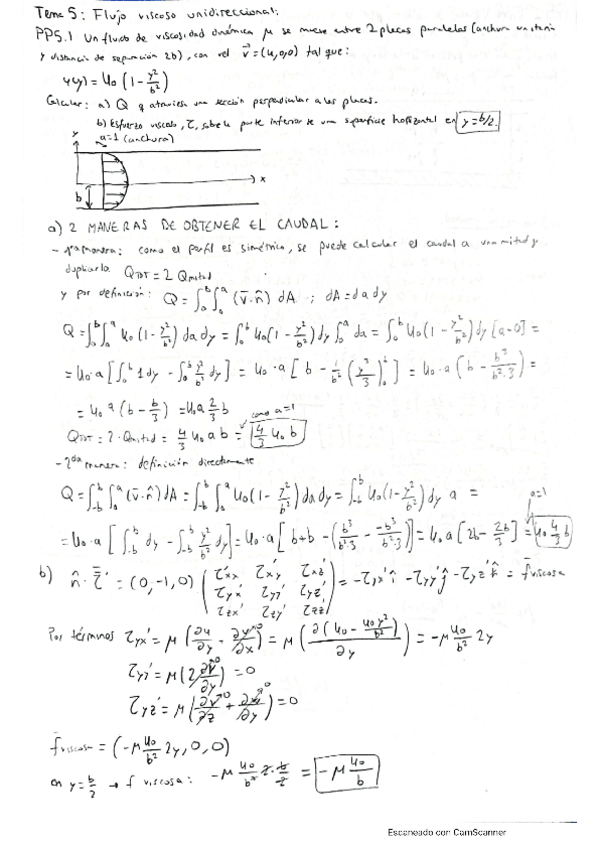 Tema 5: Flujo viscoso unidireccional:
PP5.1 Un fluido de viscosidad dinámica μ se mueve entre 2 placas paralelas (anchura unitaria
y distancia de separación 2b), con vel v⃗ = (u,0,0) tal que:
u(y) = u₀ (1 - y²/b²)
Calcular: a) Q q atraviesa una sección perpendicular a las placas.
b) Esfuerzo viscoso, τ, sobre la parte inferior de una superficie horizontal en y = b/2
a=1 (anchura)
y
x
b
a) 2 MANERAS DE OBTENER EL CAUDAL:
- 1ra manera: como el perfil es simétrico, se puede calcular el caudal a una mitad y
duplicarla. Q_TOT = 2 Q_mitad
y por definición: Q = ∫₀ᵇ ∫₀ᵃ (v̄·n̄) dA ; dA = da dy
Q = ∫₀ᵇ ∫₀ᵃ u₀ (1 - y²/b²) da dy = ∫₀ᵇ u₀ (1 - y²/b²) dy ∫₀ᵃ da = ∫₀ᵇ u₀ (1 - y²/b²) dy [a-0] =
= u₀·a [∫₀ᵇ 1 dy - ∫₀ᵇ y²/b² dy] = u₀·a [b - 1/b² (y³/3)₀ᵇ] = u₀·a (b - b³/(b²·3)) =
= u₀ a (b - b/3) = u₀ a 2/3 b
como a=1
Q_TOT = 2·Q_mitad = 4/3 u₀ a b = 4/3 u₀ b
- 2da manera: definición directamente
Q = ∫₋ᵇᵇ ∫₀ᵃ (v̄·n̂) dA = ∫₋ᵇᵇ ∫₀ᵃ u₀ (1 - y²/b²) da dy = ∫₋ᵇᵇ u₀ (1 - y²/b²) dy a =
a=1
= u₀·a [∫₋ᵇᵇ dy - ∫₋ᵇᵇ y²/b² dy] = u₀·a [b+b - (b³/(b²·3) - -b³/(b²·3))] = u₀ a [2b - 2b/3] = u₀ 4/3 b
b) n̂·τ̿' = (0,-1,0) (τxx' τxy' τxz' / τyx' τyy' τyz' / τzx' τzy' τzz') = -τyx' î - τyy' ĵ - τyz' k̂ = f̄ viscosa
Por términos τyx' = μ (∂u/∂y + ∂v/∂x) = μ (∂(u₀ - u₀y²/b²)/∂y) = -μ u₀/b² 2y
τyy' = μ (2 ∂v/∂y) = 0
τyz' = μ (∂v/∂z + ∂w/∂y) = 0
f̄ viscosa = (-μ u₀/b² 2y, 0, 0)
en y = b/2 → f viscosa: -μ u₀/b² 2·b/2 = -μ u₀/b
Escaneado con CamScanner